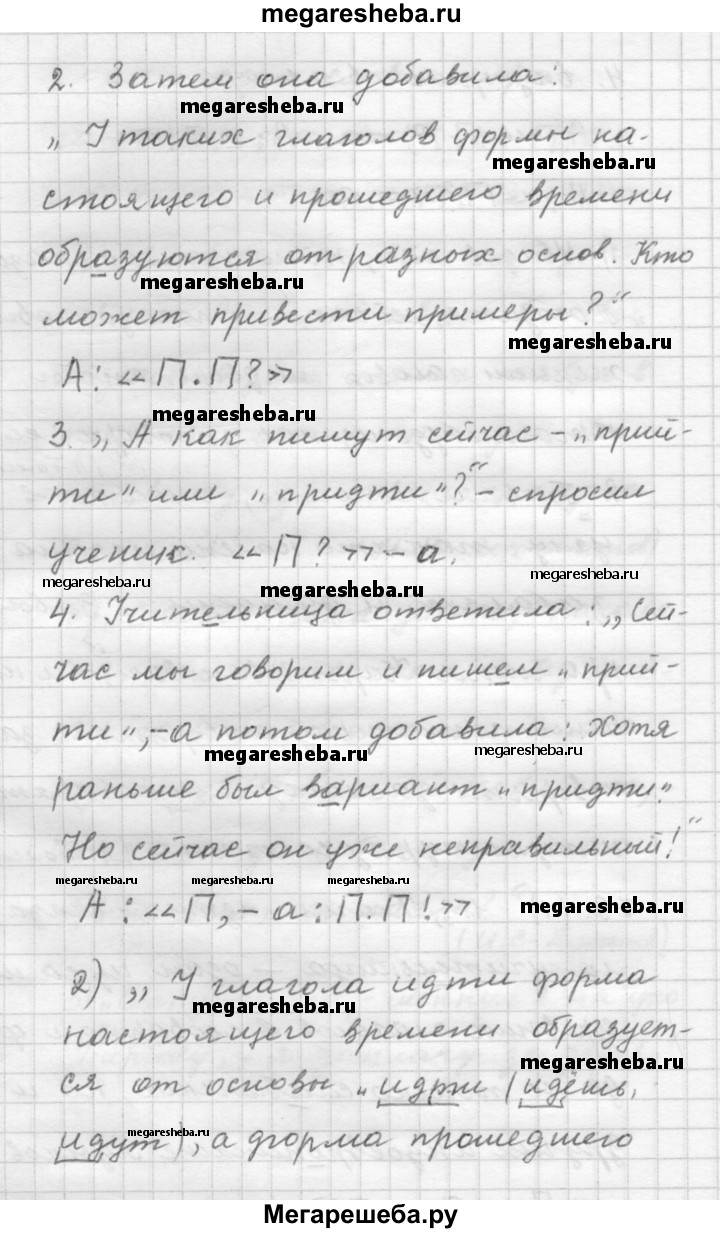 megaresheba.ru
2. Затем она добавила:
megaresheba.ru
„У таких глаголов формы на-
megaresheba.ru
стоящего и прошедшего времени
образуются от разных основ. Кто
megaresheba.ru
может привести примеры?“
megaresheba.ru
А: «П. П?»
megaresheba.ru
3. „А как пишут сейчас – „прий-
ти“ или „придти“?“ – спросил
ученик. «П?» – а.
megaresheba.ru megaresheba.ru megaresheba.ru
4. Учительница ответила: „Сей-
час мы говорим и пишем „прий-
ти“, – а потом добавила: Хотя
megaresheba.ru megaresheba.ru
раньше был вариант „придти“.
Но сейчас он уже неправильный!“
megaresheba.ru megaresheba.ru megaresheba.ru
А: «П, – а: П. П!» megaresheba.ru
2) „У глагола идти форма
megaresheba.ru
настоящего времени образует-
megaresheba.ru
ся от основы „идти (идёшь,
megaresheba.ru
идут), а форма прошедшего
Мегарешеба.ру